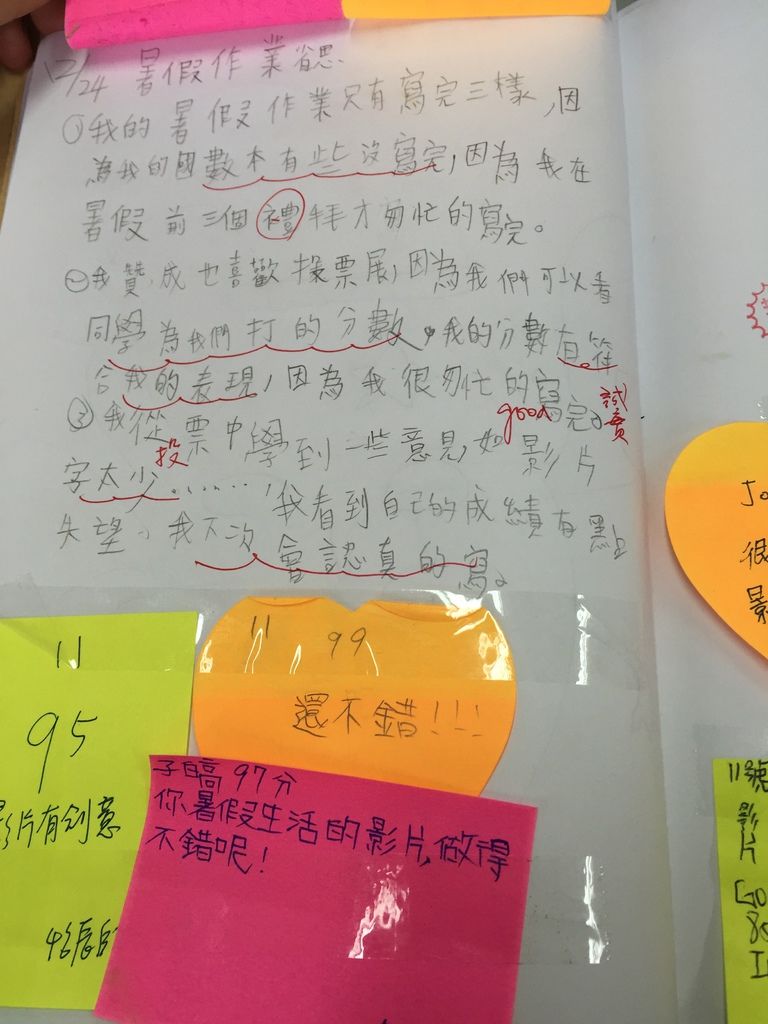 12/24 暑假作業省思
①我的暑假作業只有寫完三樣,因
為我的國數本有些沒寫完,因為我在
暑假前三個禮拜才匆忙的寫完。
②我贊成也喜歡投票展,因為我們可以看
同學為我們打的分數。我的分數有符
合我的表現,因為我很匆忙的寫完。
good
誠實
③我從投票中學到一些意見,如影片
字太少......,我看到自己的成績有點
失望。我下次會認真的寫。
11
95
影片有創意
11 99
還不錯!!!
97分
你暑假生活的影片,做得
不錯呢!
Jo
很
影
11號
影
片
Go